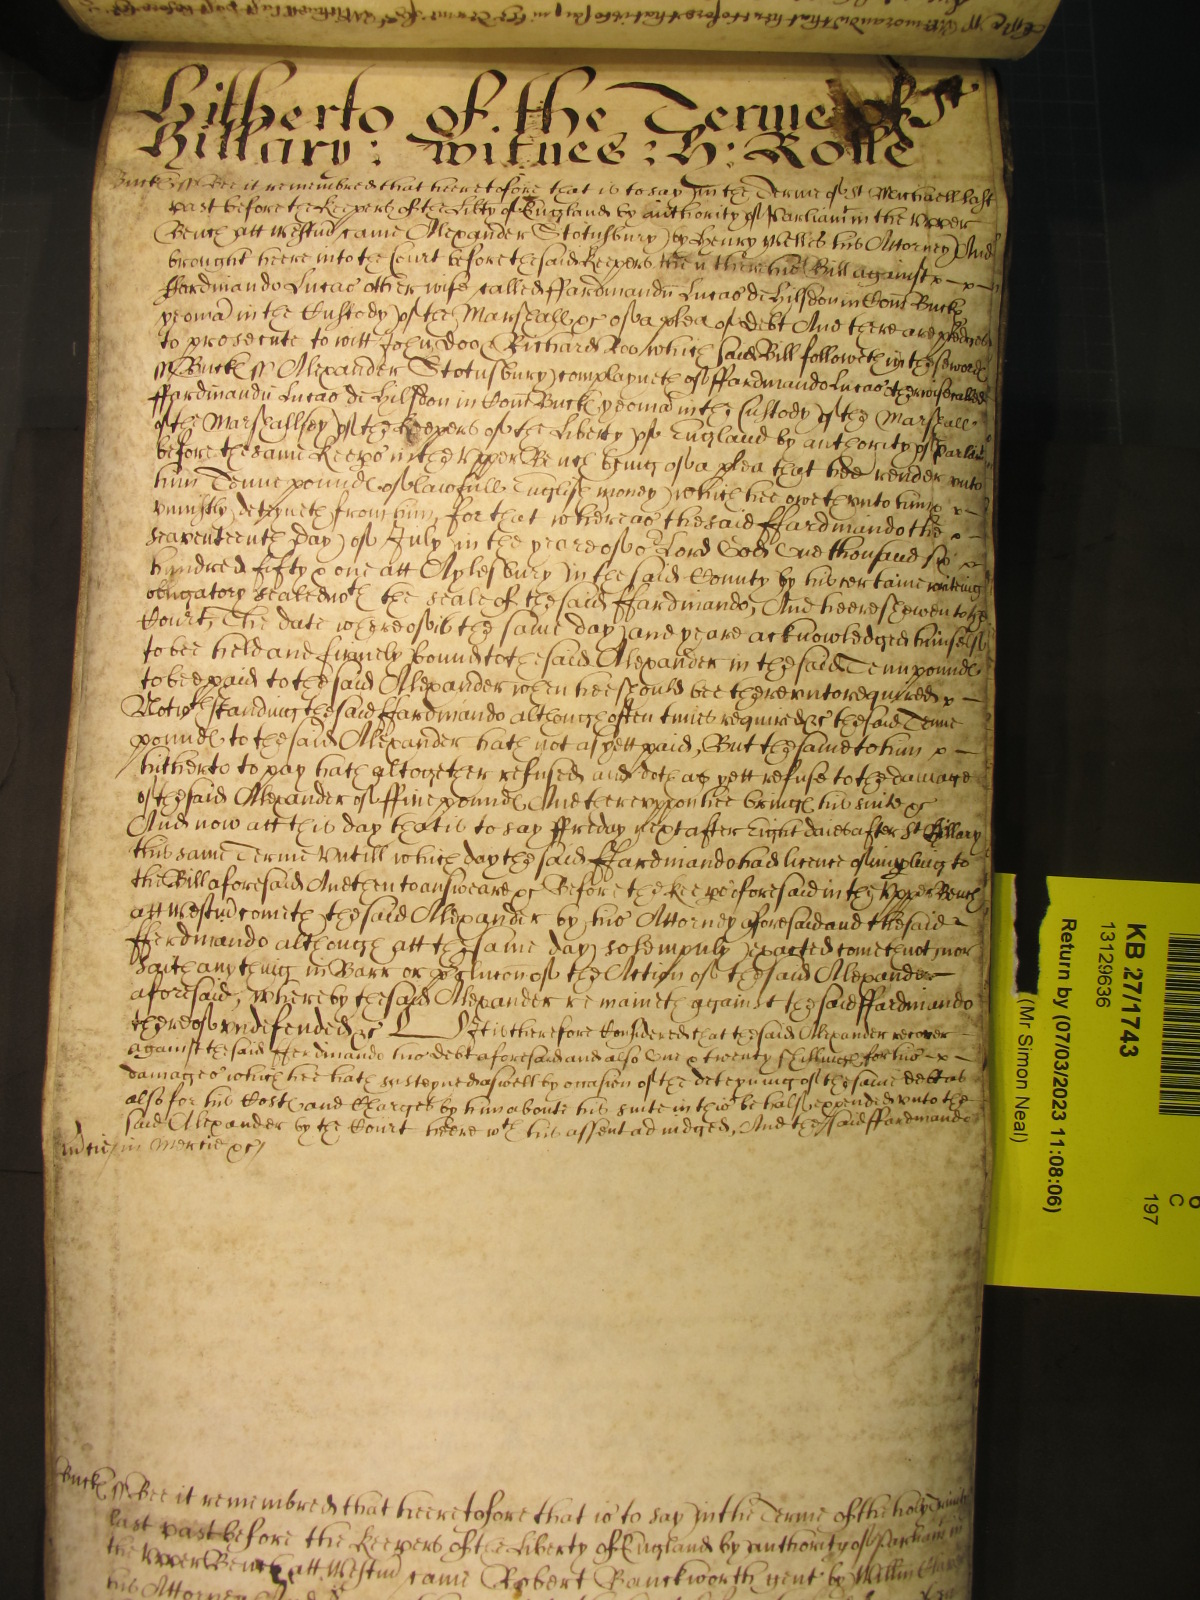 Hitherto of the Terme of St
Hillary: Witnes: H: Rolle
Buck ss Bee it remembred that heeretofore that is to say in the Terme of St Michaell last
past before the Keepers of the Libty of England by authority of Parliam in the Upper
Bench att Westm came Alexander Stotusbury by Henry Welles his Attorney And
brought heere into the Court before the said Keepers then there his Bill against
ffardinando Lucas otherwise called ffardinandu Lucas de Hilsdon in Com Buck
yeoma in the Custody of the Marshall &c of a plea of debt And there are pledges
to prosecute to witt John Doo Richard Roo which said Bill followeth in these words
ss Buck ss Alexander Stotusbury complayneth of ffardinando Lucas otherwise called
ffardinandu Lucas de Hilsdon in Com Buck yeoma in the Custody of the Marshall
of the Marshallsey of the Keepers of the Liberty of England by authority of Parliam
before the same Keeps in the Upper Bench being of a plea that hee render unto
him Tenne pounds of lawfull English money which hee oweth unto him &
uniustly deteyneth from him, for that whereas the said ffardinando the
seaventeenth day of July in the yeare of or Lord God One thousand six
hundred fifty & one att Aylesbury in the said County by his certaine writeing
obligatory sealed wth the seale of the said ffardinando, And heere shewen to the
Court, The date whereof is the same day and yeare acknowledged himself
to bee held and firmely bound to the said Alexander in the said Tenn pounds
to bee paid to the said Alexander when hee should bee thereunto required
Notwthstanding the said ffardinando although often times required &c the said Tenne
pounds to the said Alexander hath not as yett paid, But the same to him
hitherto to pay hath altogether refused and doth as yett refuse to the damage
of the said Alexander of ffive pounds And thereuppon hee bringth his suite &c
And now att this day that is to say ffryday next after Eight daies after St Hillary
this same Terme Untill which day the said ffardinando had licence of impling to
the Bill aforesaid And then to answeare &c Before the Keepers aforesaid in the Upper Bench
att Westm cometh the said Alexander by his Attorney aforesaid and the said
fferdinando although att the same day solempnly exacted cometh not nor
saith any thing in Barr or pclucon of the Action of the said Alexander
aforesaid, whereby the said Alexander remaineth against the said ffardinando
thereof undefended &c It is therefore Considered that the said Alexander recover
against the said fferdinando his debt aforesaid and also One & twenty shillings for his
damages which hee hath susteyned aswell by occasion of the deteyning of the same debt as
also for his Costs and Charges by him aboute his suite in this behalf expended unto the
said Alexander by the Court heere wth his assent adiudged, And the said ffardinando
in mercie &c
Buck ss Bee it remembred that heeretofore that is to say in the Terme of the holy Trinity
last past before the Keepers of the Liberty of England by authority of Parliam in
the Upper Bench att Westm came Robert Banckworth gent by Willm
his Attorney And
KB 27/1743
13129636
(Mr Simon Neal)
Return by (07/03/2023 11:08:06)
6
C
197